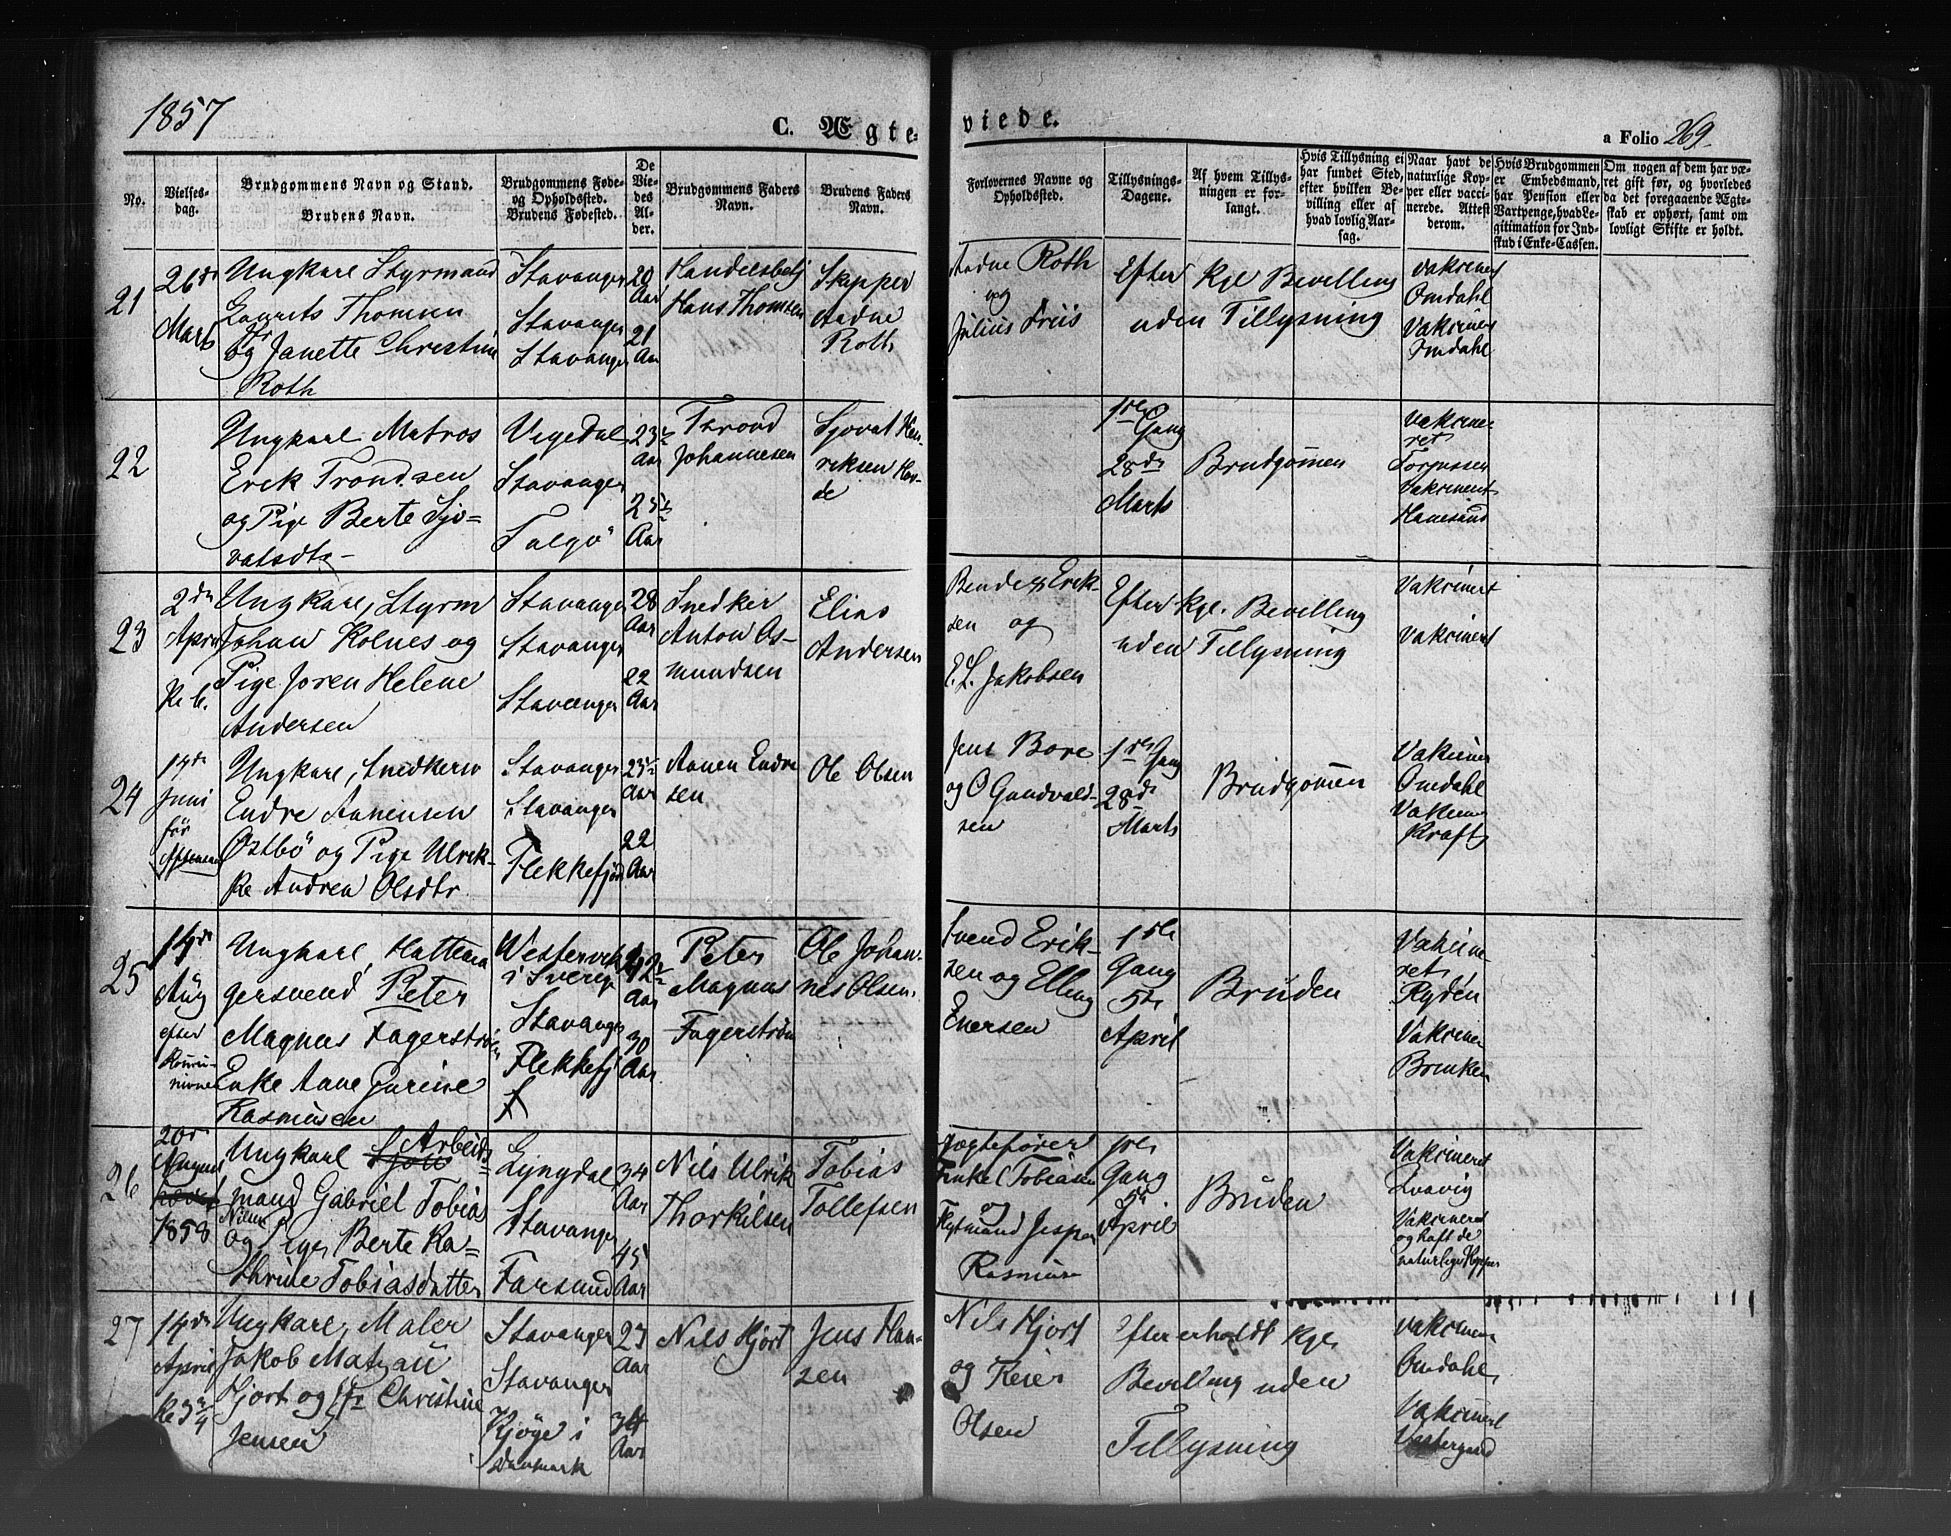 1857
C. Ægte-
viede.
a Folio 269.
No.
Vielses-
dag.
Brudgommens Navn og Stand.
Brudens Navn.
Brudgommens Føde-
og Opholdssted.
Brudens Fødested.
De
Vie-
des
Al-
der.
Brudgommens Faders
Navn.
Brudens Faders
Navn.
Forlovernes Navne og
Opholdssted.
Tillysnings-
Dagene.
Af hvem Tillys-
ningen er for-
langt.
Hvis Tillysning ei
har fundet Sted,
efter hvilken Be-
villing eller af
hvad lovlig Aar-
sag.
Naar havt de
naturlige Kop-
per eller vacci-
nerede. Attest
derom.
Hvis Brudgommen
er Embedsmand,
har Pension eller
Vartpenge, hvad Le-
gitimation for Ind-
skud i Enke-Cassen.
Om nogen af dem har væ-
ret gift før, og hvorledes
da det foregaaende Ægte-
skab er ophørt, samt om
lovligt Skifte er holdt.
21
26de
Marts
Ungkarl Styrmand
Laurits Thomsen
og Jfr Janette Christine
Roth
Stavanger
Stavanger
Stavanger
20
Aar
21
Aar
Handelsbetj
Hans Thomsen
Skipper
Aadne
Roth
Aadne Roth
og
Julius Friis
Efter kgl Bevilling
uden Tillysning
Vaksineret
Omdahl
Vaksineret
Omdahl
22
Ungkarl Matros
Erik Trondsen
og Pige Berte Sjo-
valsdtr
Stavanger
Talgö
23½
Aar
25½
Aar
Thrond
Johannesen
Sjovat Hen-
riksen
1ste
Gang
28de
Marts
Brudgomen
Vaksine-
ret
Vaksineret
23
2den
April
Kl 6.
Ungkarl, Styrm
Johan Kolnes og
Pige Joren Helene
Andersen
Stavanger
Stavanger
Stavanger
28
Aar
22
Aar
Snedker
Anton As-
mundsen
Elias
Andersen
Erik-
sen og
E. L. Jakobsen
Efter kgl. Bevilling
uden Tillysning
Vaksineret
Vaksineret
24
14de
Juni
før
Ungkarl, Snedkersv
Endre Aanensen
Östbö og Pige Ulrik-
ke Andrea Olsdtr
Stavanger
Stavanger
Flekkefjord
25½
Aar
22
Aar
Aanen Endre
sen
Ole Olsen
Jens Bore
og O Gundvald-
sen
1ste Gang
28de
Marts
Brudgomen
Vaksiner
Omdahl
Vaksiner
Kraft
25
14de
Aug
efter
Ungkarl, Hattema
gersvend Peter
Magnus Fagerström
Enke Ane Gurine
Rasmusen
Westervik
i Sverig
Stavanger
Flekkefj
Aar
30
Aar
Peter
Magnus
Fagerström
Ole Johan-
nes Olsen.
Svend Erik-
sen og Elling
Enersen
1ste
Gang
5te
April
Bruden
Vaksine-
ret
Rydén
Vaksiner
Brinken
26
20de
August
1858
Ungkarl Arbeids-
mand Gabriel Tobias
Nilsen
og Pige Berte Ka-
thrine Tobiasdatter
Lyngdal
Stavanger
Farsund
34
Aar
45
Aar
Nils Ulrik
Thorkilsen
Tobias
Tollefsen
Jægtefører
Jesper
Rasmusen
1ste
Gang
5te
April
Bruden
Vaksineret
Vaksineret
og haft de
naturlige Kopper
27
14de
April
Kl 3¾
Ungkarl, Maler
Jakob
Hjort og Jfr Christine
Jensen
Stavanger
Stavanger
Kjöge i
Danmark
23
Aar
Aar
Nils Hjort
Jens Han-
sen
Nils Hjort
og Reier
Olsen
Efter erholdt kgl
Bevilling uden
Tillysning
Vaksiner
Omdahl
Vaksineret
Vestergaard